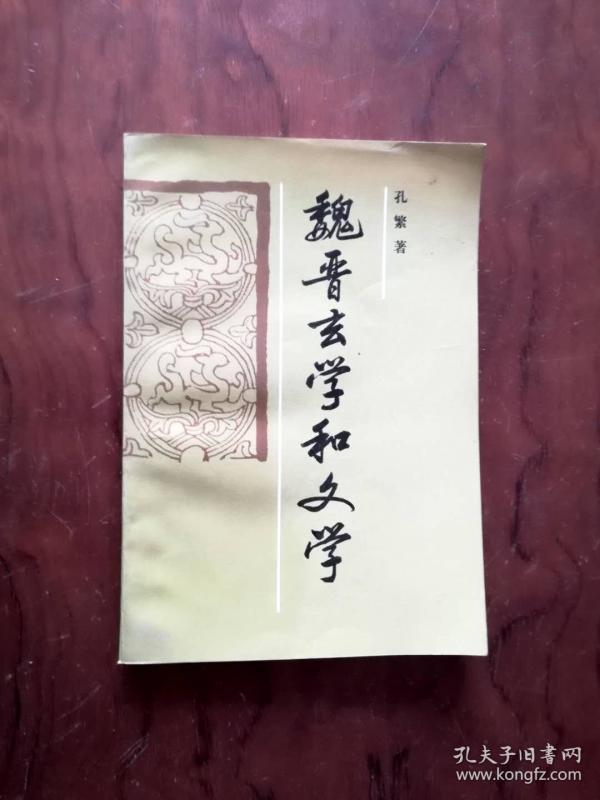 孔繁著
魏晋玄学和文学
孔夫子旧书网
www.kongfz.com